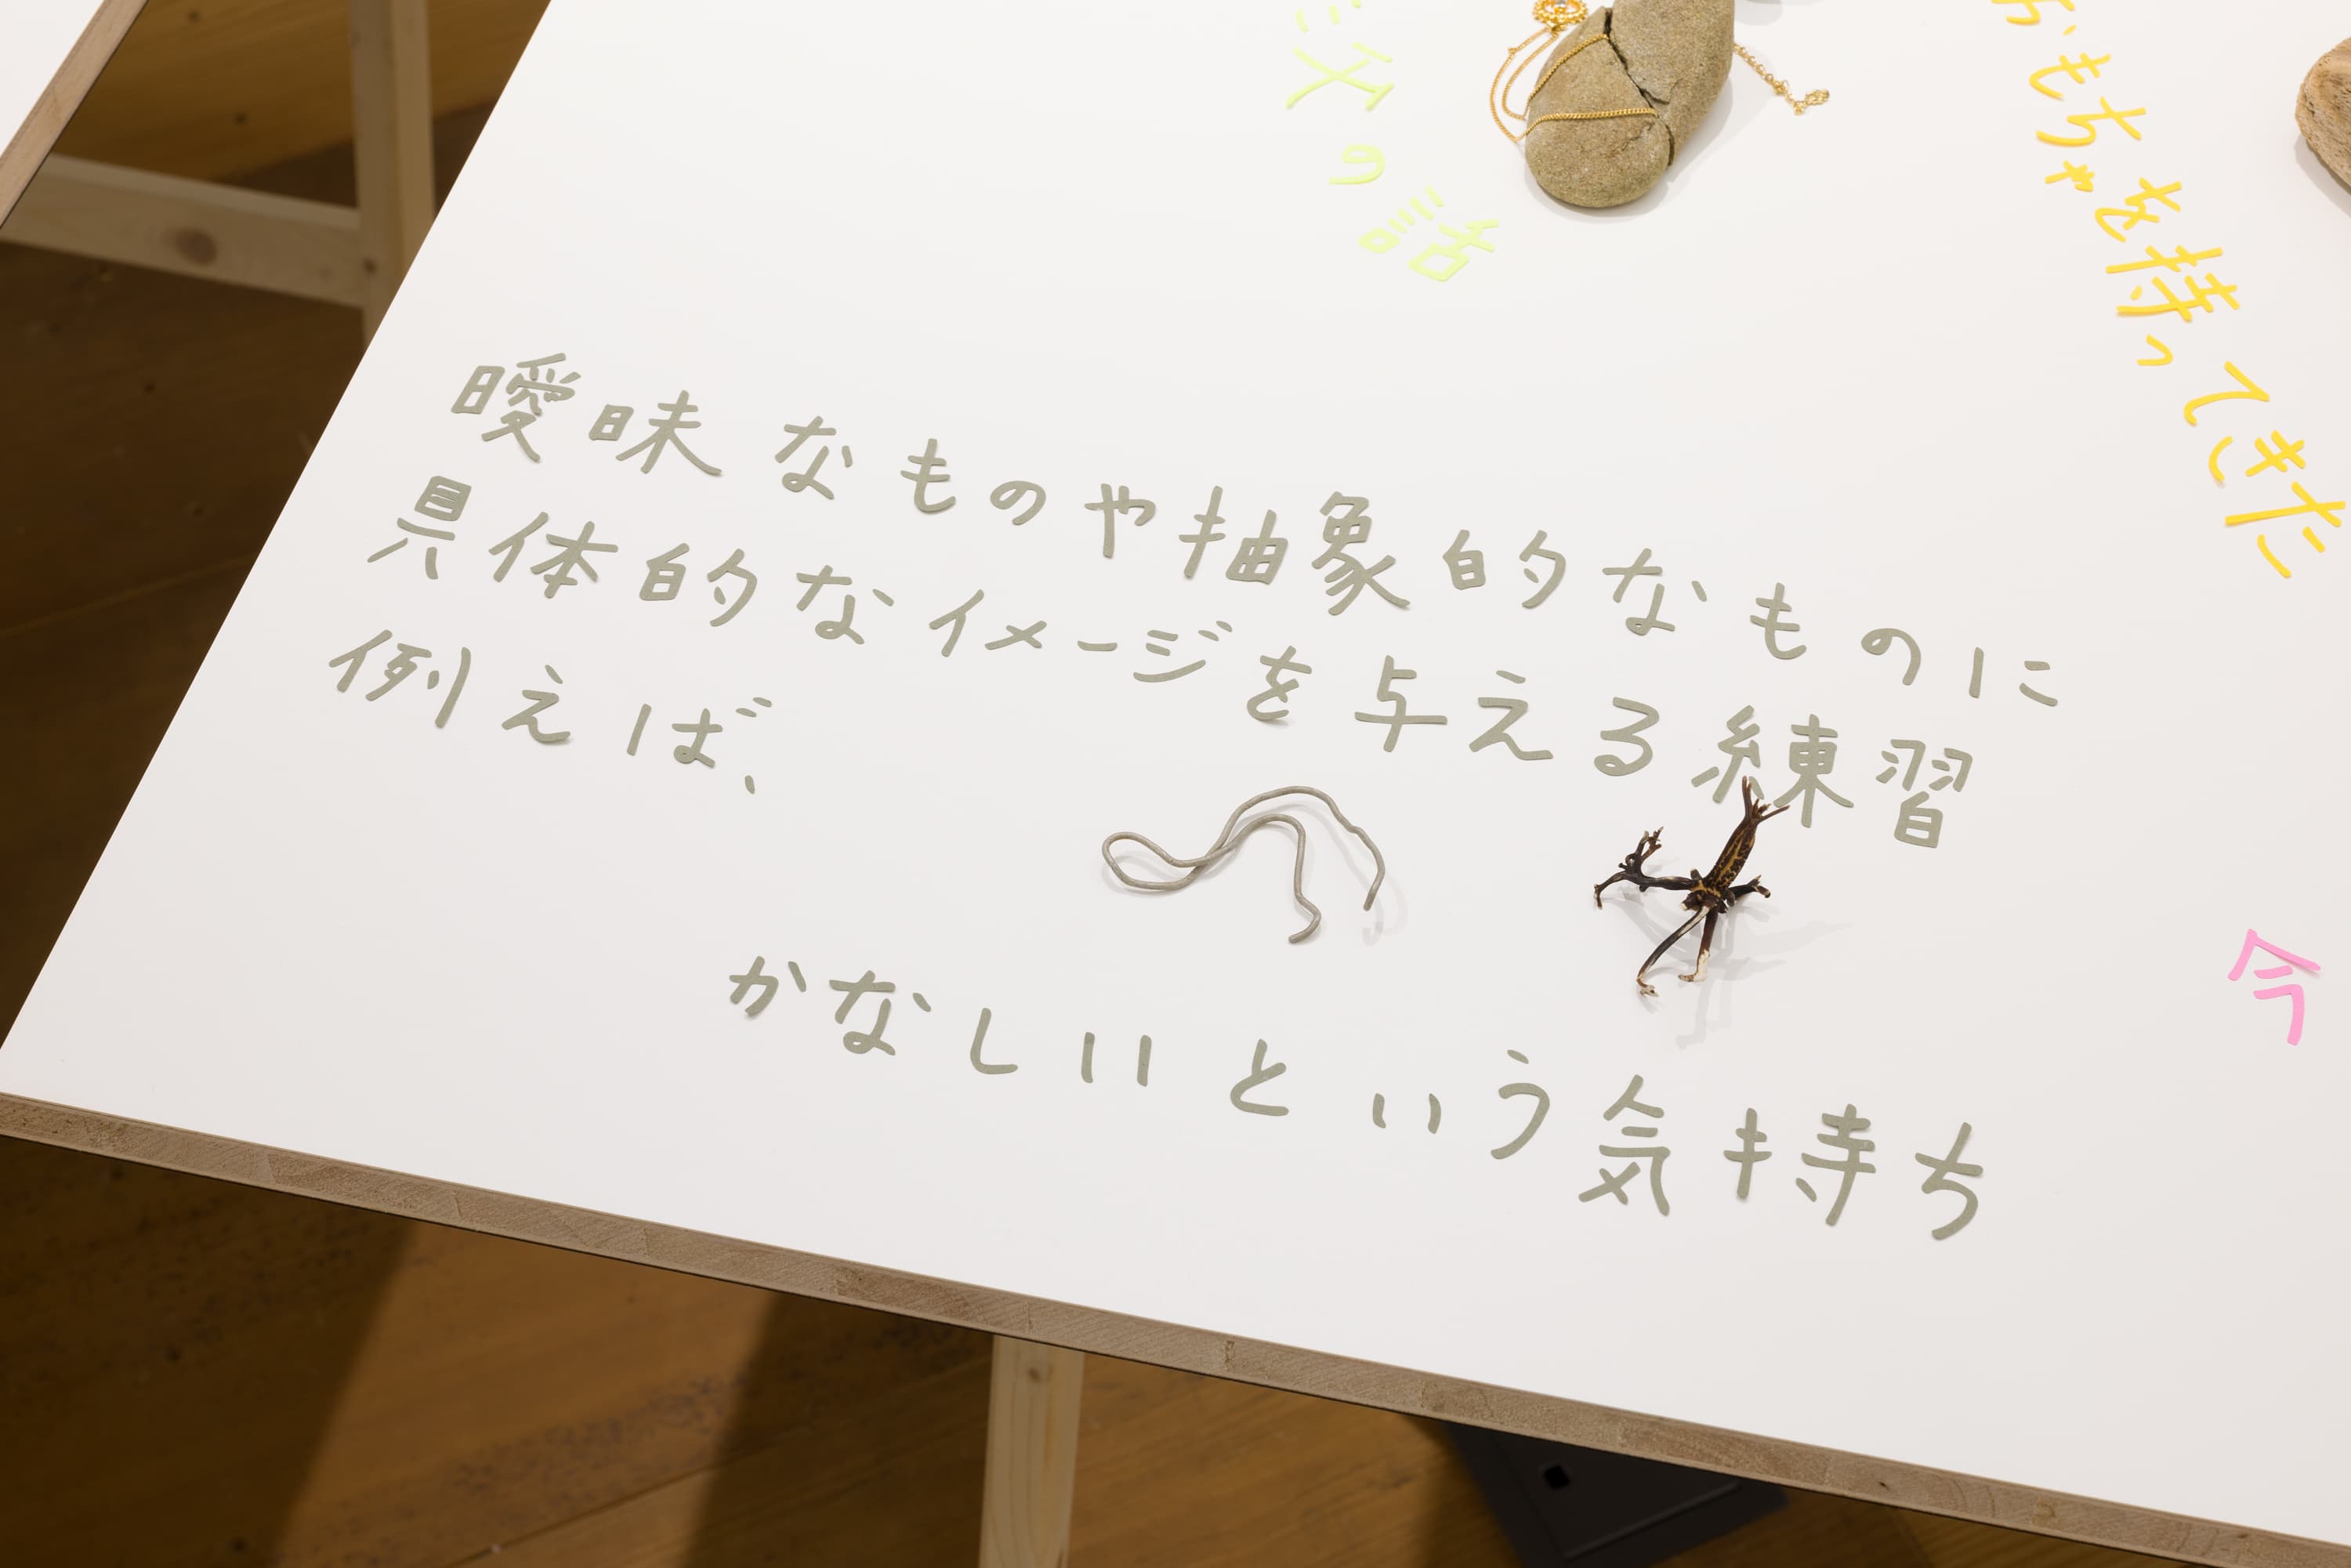 曖昧なものや抽象的なものに
具体的なイメージを与える練習
例えば、
かなしいという気持ち
の話
おもちゃを持ってきた
今